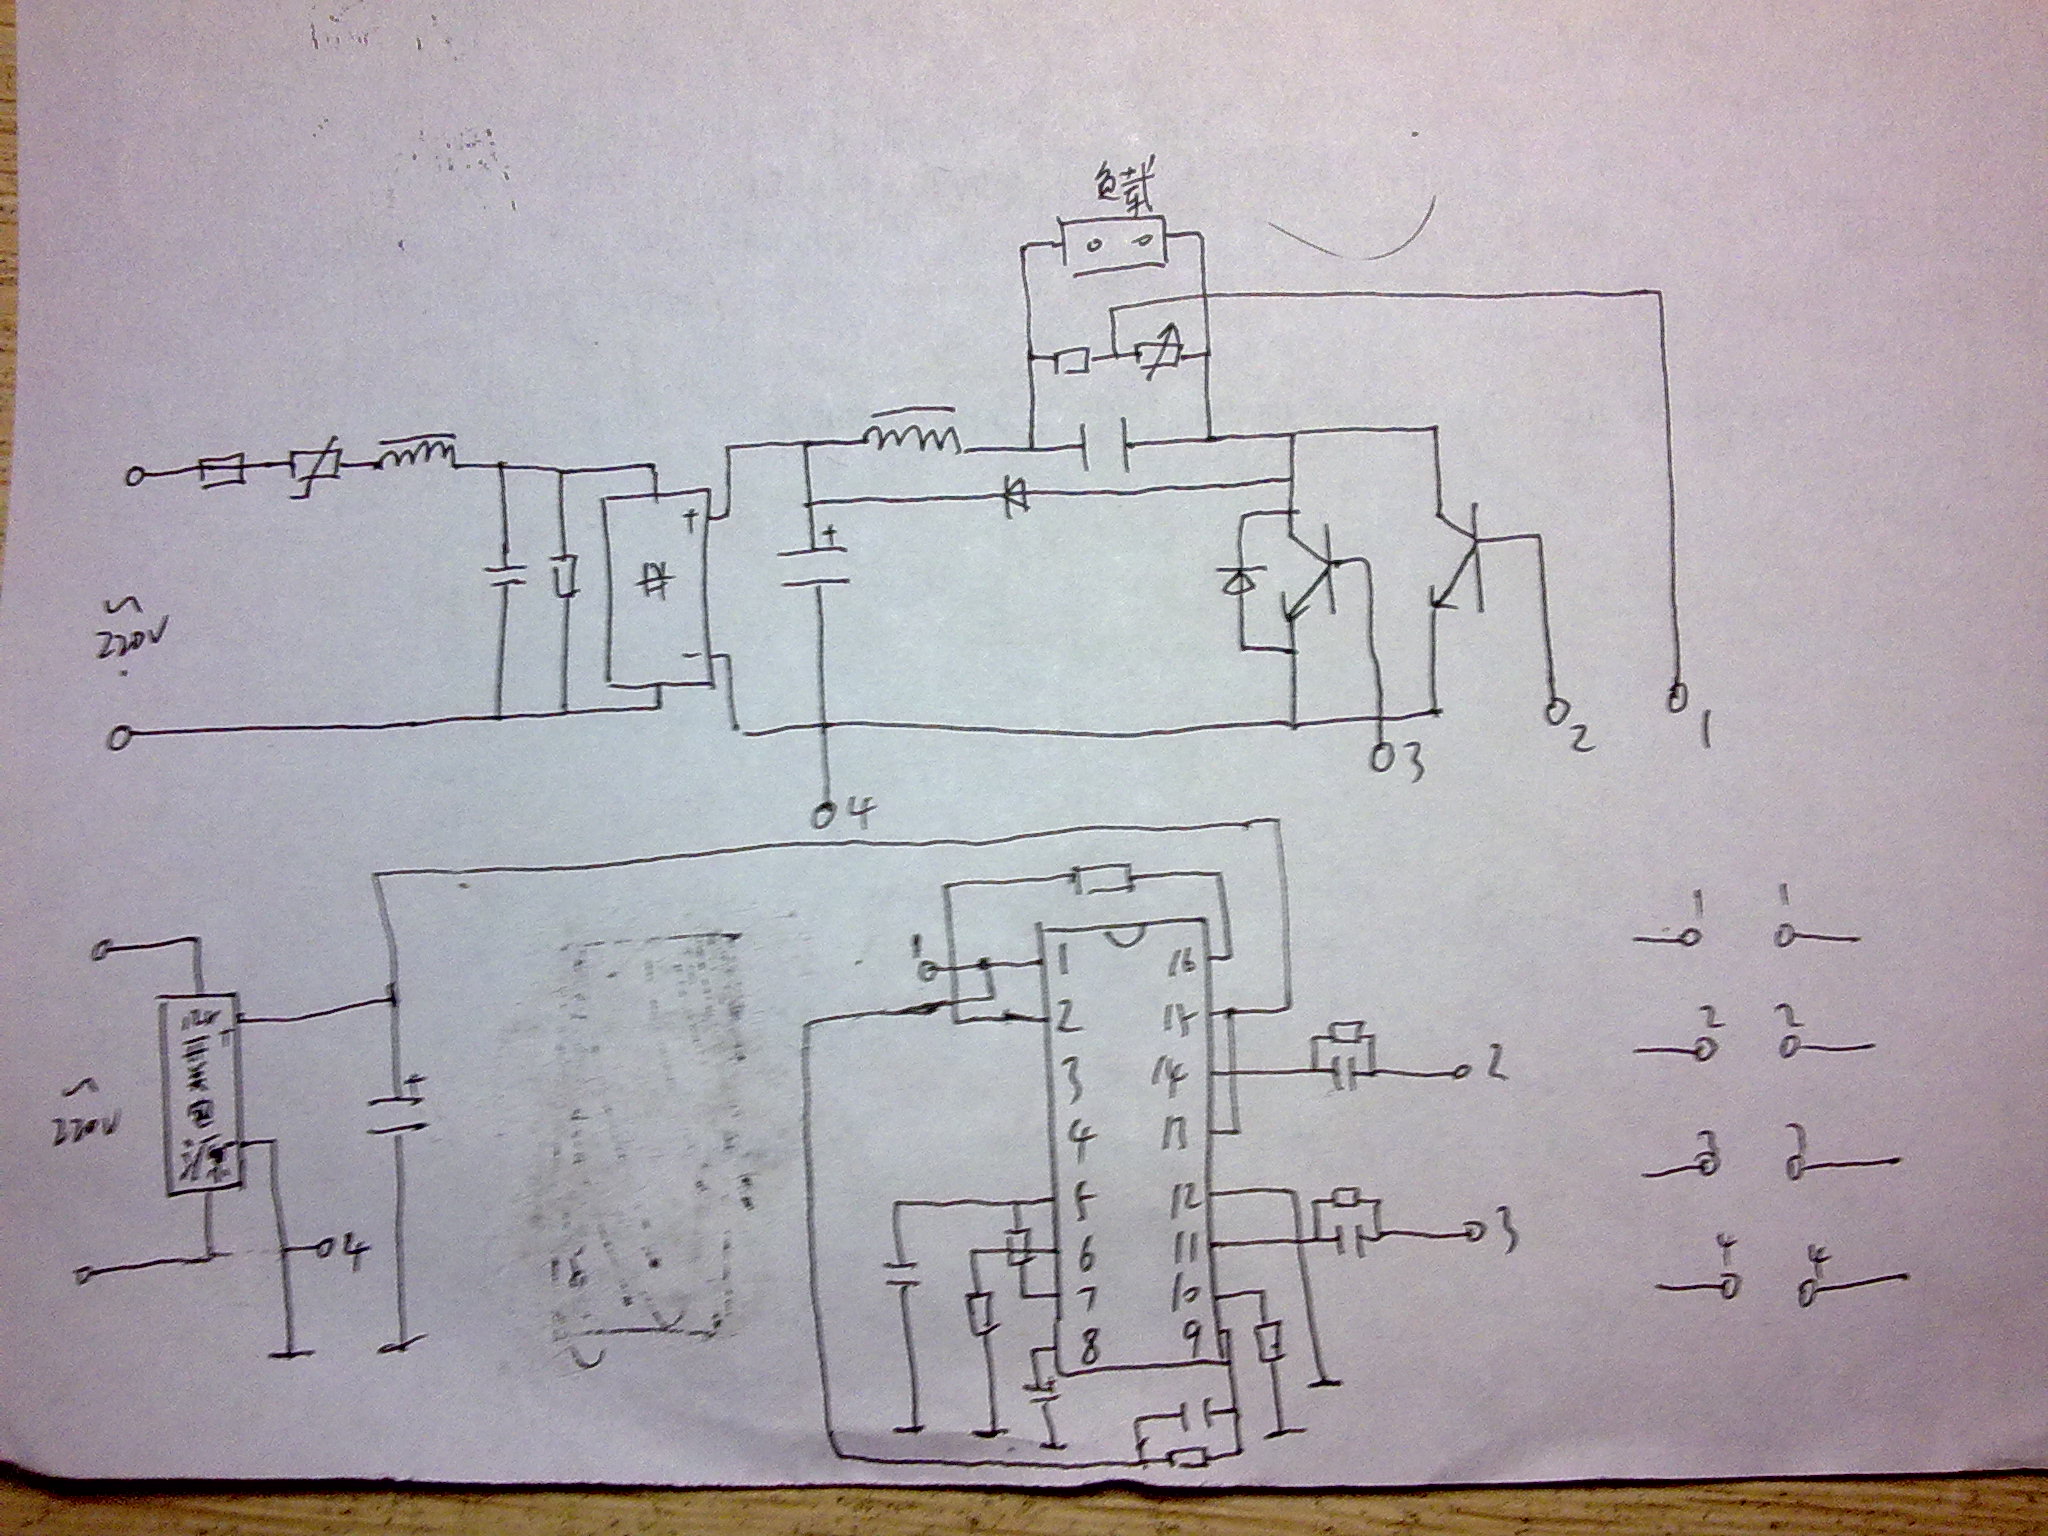 负载
+
∽
220V
-
+
3
2
1
4
1
1 16
2 15
3 14
4 13
5 12
6 11
7 10
8 9
2
3
∽
220V
+
+
4
1 1
2 2
3 3
4 4